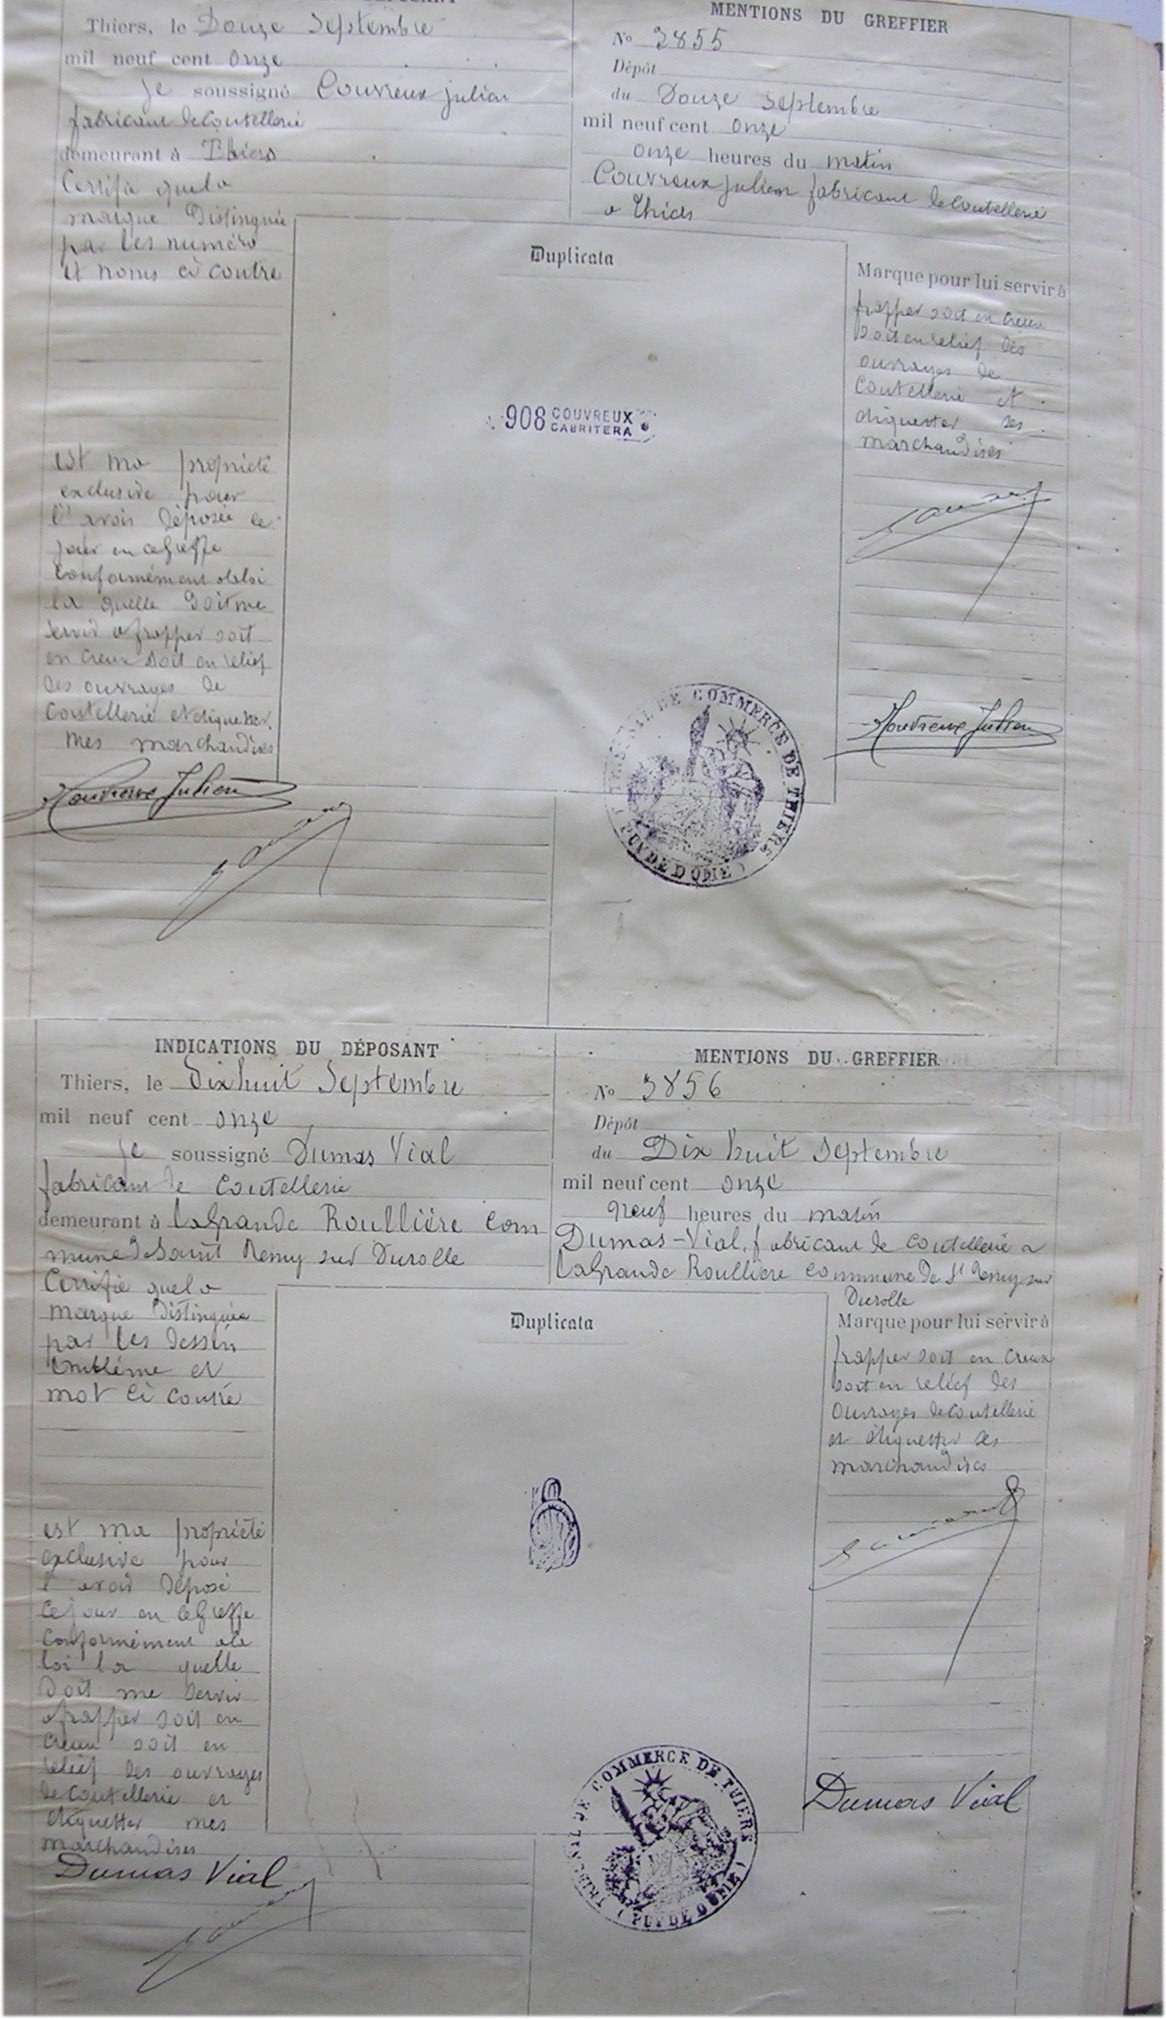 DÉPOSANT
Thiers, le Douze Septembre
mil neuf cent onze
Je soussigné Couvreux Julien
fabricant de Coutellerie
demeurant à Thiers
Certifie que la
marque Distinguée
par les numéro
et noms ci contre
est ma propriété
exclusive pour
l'avoir déposée ce
jour en ce Greffe
conformément a la loi
la quelle doit me
servir a frapper soit
en creux soit en relief
des ouvrages de
Coutellerie et etiqueter
mes marchandises
Couvreux Julien
MENTIONS DU GREFFIER
No 3855
Dépôt
du Douze Septembre
mil neuf cent onze
onze heures du matin
Couvreux Julien fabricant de Coutellerie
a Thiers
Duplicata
908 COUVREUX
CABRITERA
Marque pour lui servir à
frapper soit en creux
soit en relief des
ouvrages de
Coutellerie et
étiqueter ses
marchandises
Couvreux Julien
TRIBUNAL DE COMMERCE DE THIERS
(PUY DE DOME)
INDICATIONS DU DÉPOSANT
Thiers, le Dix huit Septembre
mil neuf cent onze
Je soussigné Dumas Vial
fabricant de Coutellerie
demeurant à la Grande Roullière Com
mune de Saint Remy sur Durolle
Certifie que la
marque Distinguée
par les dessin
emblème et
mot ci contre
est ma propriété
exclusive pour
l'avoir déposé
ce jour en ce Greffe
conformément a la
loi la quelle
doit me servir
a frapper soit en
creux soit en
relief des ouvrages
de Coutellerie et
étiquetter mes
marchandises
Dumas Vial
MENTIONS DU GREFFIER
No 3856
Dépôt
du Dix huit Septembre
mil neuf cent onze
neuf heures du matin
Dumas-Vial, fabricant de Coutellerie a
la Grande Roulliere commune de St Remy sur
Durolle
Duplicata
Marque pour lui servir à
frapper soit en creux
soit en relief des
ouvrages de Coutellerie
et étiquetter ses
marchandises
Dumas Vial
TRIBUNAL DE COMMERCE DE THIERS
(PUY DE DOME)